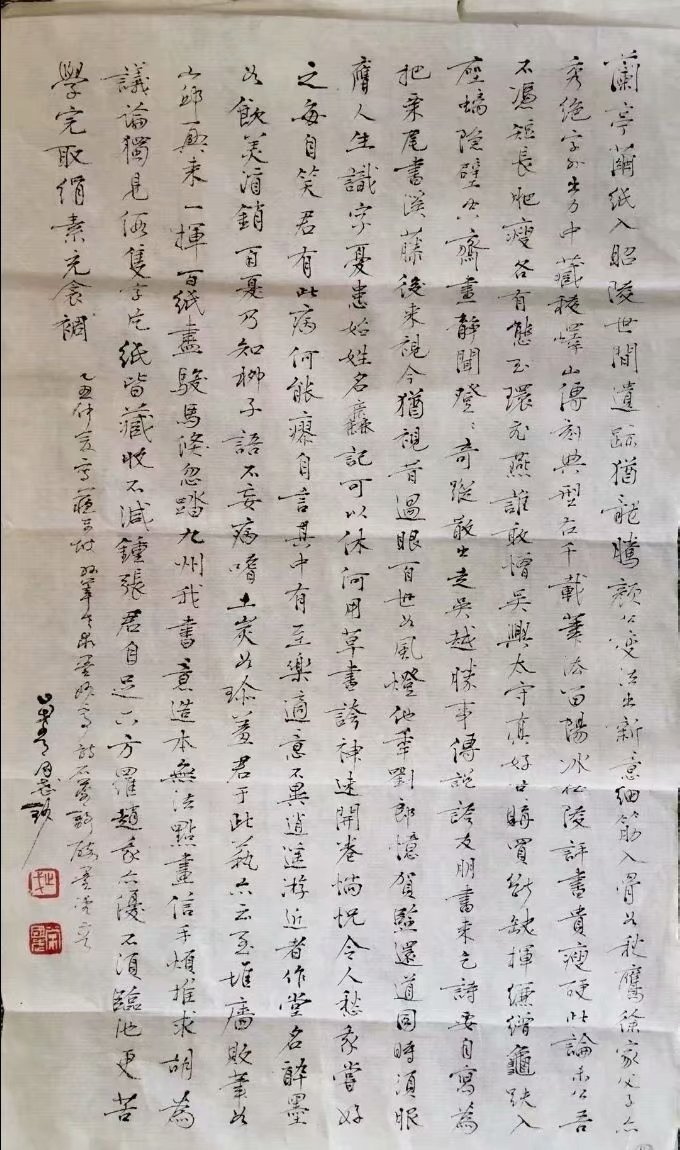 蘭亭繭紙入昭陵世間遺跡猶龍騰顏公變法出新意細筋入骨如秋鷹徐家父子亦
秀絕字外出力中藏稜嶧山傳刻典型在千載筆法留陽冰杜陵評書貴瘦硬此論未公吾
不憑短長肥瘦各有態玉環飛燕誰敢憎吳興太守真好古購買斷缺揮縑繒龜趺入
座螭隱壁空齋晝靜聞登〻奇蹤散出走吳越勝事傳說誇友朋書來乞詩要自寫為
把栗尾書溪藤後來視今猶視昔過眼百世如風燈他年劉郎憶賀監還道同時須服
膺人生識字憂患始姓名麤記可以休何用草書誇神速開卷惝怳令人愁我嘗好
之每自笑君有此病何能瘳自言其中有至樂適意不異逍遙游近者作堂名醉墨
如飲美酒銷百憂乃知柳子語不妄病嗜土炭如珍羞君于此藝亦云至堆牆敗筆如
山邱興來一揮百紙盡駿馬倏忽踏九州我書意造本無法點畫信手煩推求胡為
議論獨見假隻字片紙皆藏收不減鍾張君自足下方羅趙我亦優不須臨池更苦
學完取絹素充衾裯
乙丑仲夏寫蘇